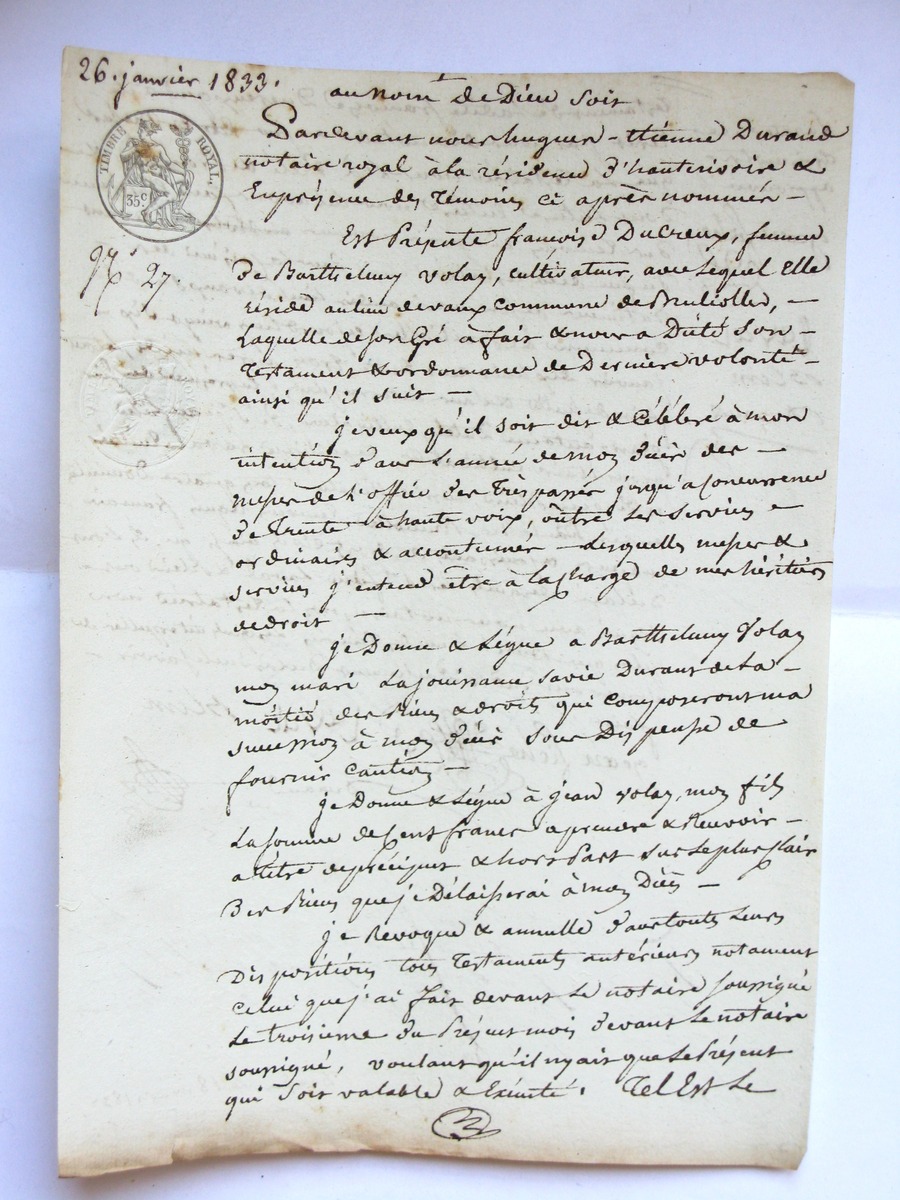 26. janvier 1833.
au nom de Dieu soit
TIMBRE ROYAL.
35c
Pardevant nous hugues-Etienne Durand
notaire royal à la résidence d'hauterivoire &
En présence des témoins ci après nommés —
Est Présente françoise Ducreux, femme
de Barthelemy Volay, cultivateur, avec Lequel Elle
réside au lieu de vaux commune de Brullioles, —
Laquelle de son Gré a fait & nous a Dicté son —
Testament & ordonnance de Dernière volonté —
ainsi qu'il suit —
27.
je veux qu'il soit dit & Célébré à mon
intention dans L'année de mon décès des —
messes de L'office des Trépassés jusqu'a Concurrence
de Trente à haute voix, outre les services —
ordinaires & accoutumés — Lesquelles messes &
services j'entend être à la charge de mes héritiers
de droit —
je Donne & Lègue a Barthelemy Volay
mon mari La jouissance sa vie Durant de La —
moitié des Biens & droits qui composeront ma
succession à mon décès sous Dispense de
fournir caution —
je Donne & Lègue à jean Volay, mon fils
La somme de Cent francs a prendre & Recevoir —
a titre de préciput & hors Part sur le plus Clair
des Biens que je Délaisserai à mon Décès —
je Revoque & annulle dans toutes Leurs
Dispositions tous Testaments antérieurs notament
Celui que j'ai fait devant Le notaire soussigné
Le troisieme du Présent mois devant Le notaire
soussigné, voulant qu'il n'y ait que Le Présent
qui soit valable & Exécuté. Tel Est Le